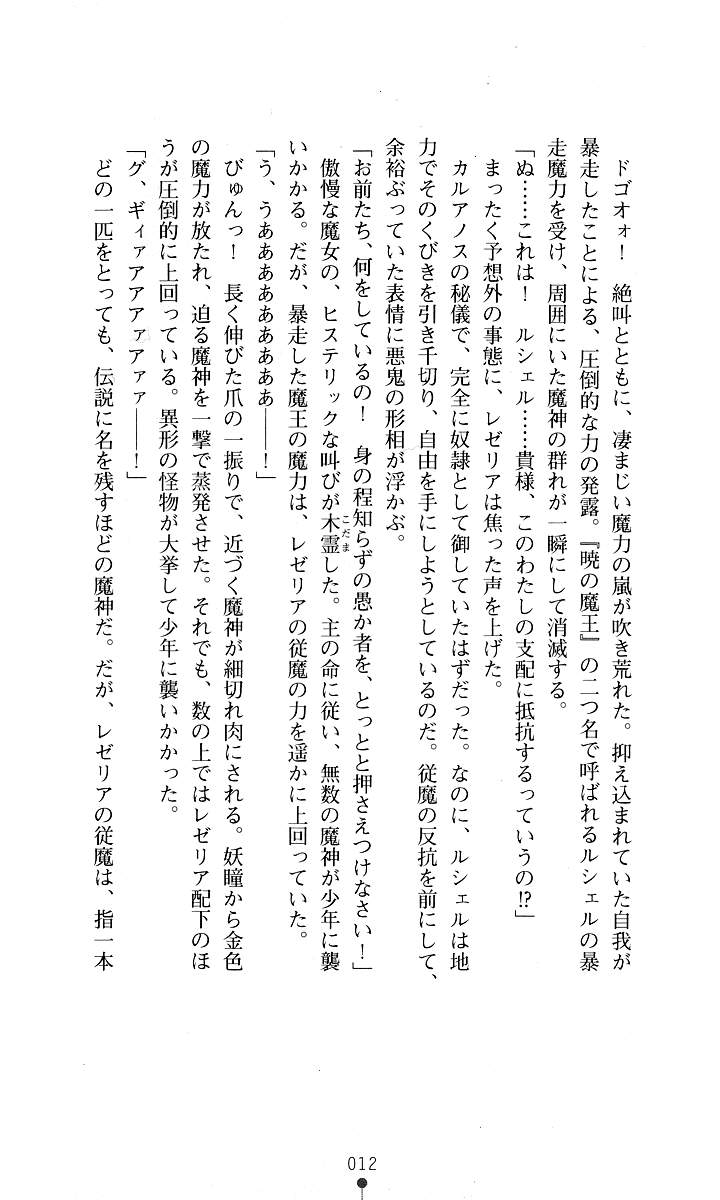 ドゴオォ！　絶叫とともに、凄まじい魔力の嵐が吹き荒れた。抑え込まれていた自我が
暴走したことによる、圧倒的な力の発露。『暁の魔王』の二つ名で呼ばれるルシェルの暴
走魔力を受け、周囲にいた魔神の群れが一瞬にして消滅する。
「ぬ……これは！　ルシェル……貴様、このわたしの支配に抵抗するっていうの!?」
　まったく予想外の事態に、レゼリアは焦った声を上げた。
　カルアノスの秘儀で、完全に奴隷として御していたはずだった。なのに、ルシェルは地
力でそのくびきを引き千切り、自由を手にしようとしているのだ。従魔の反抗を前にして、
余裕ぶっていた表情に悪鬼の形相が浮かぶ。
「お前たち、何をしているの！　身の程知らずの愚か者を、とっとと押さえつけなさい！」
　傲慢な魔女の、ヒステリックな叫びが木霊こだました。主の命に従い、無数の魔神が少年に襲
いかかる。だが、暴走した魔王の魔力は、レゼリアの従魔の力を遥かに上回っていた。
「う、うああああああああぁ――！」
　びゅんっ！　長く伸びた爪の一振りで、近づく魔神が細切れ肉にされる。妖瞳から金色
の魔力が放たれ、迫る魔神を一撃で蒸発させた。それでも、数の上ではレゼリア配下のほ
うが圧倒的に上回っている。異形の怪物が大挙して少年に襲いかかった。
「グ、ギィァアアアァアァァ――！」
　どの一匹をとっても、伝説に名を残すほどの魔神だ。だが、レゼリアの従魔は、指一本
012